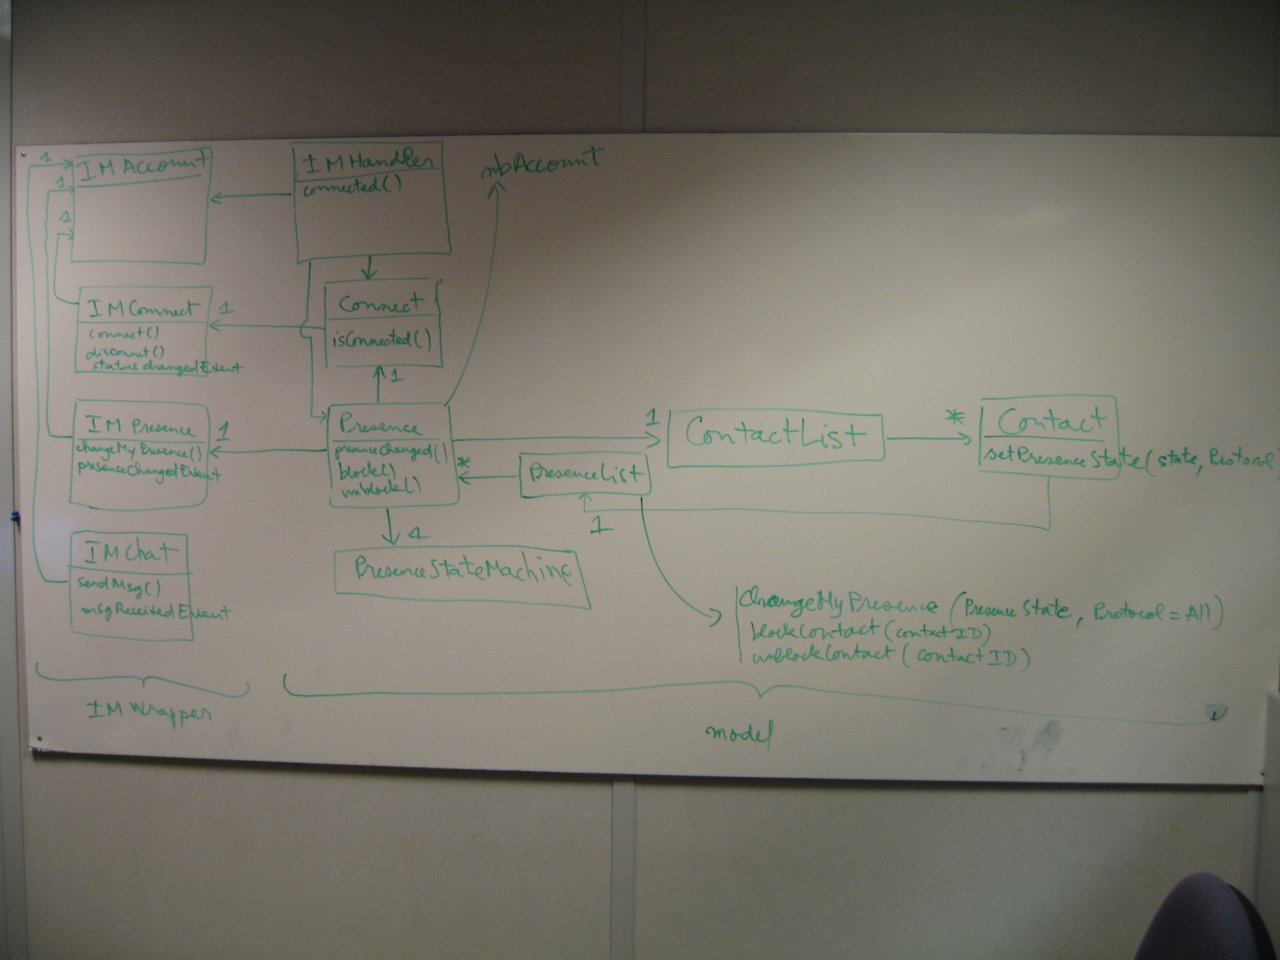 1
IMAccount
1
1
IMHandler
connected()
nbAccount
IMConnect
connect()
disconnt()
statuschangedEvent
1
Connect
isConnected()
1
IM Presence
changeMyPresence()
presenceChangedEvent
1
Presence
presenceChanged()
block()
unblock()
*
PresenceList
1
ContactList
*
Contact
setPresenceState(state, Protocol)
1
IMChat
sendMsg()
msgReceivedEvent
1
PresenceStateMachine
changeMyPresence (PresenceState, Protocol=All)
blockContact(contactID)
unblockContact(contactID)
IMWrapper
model